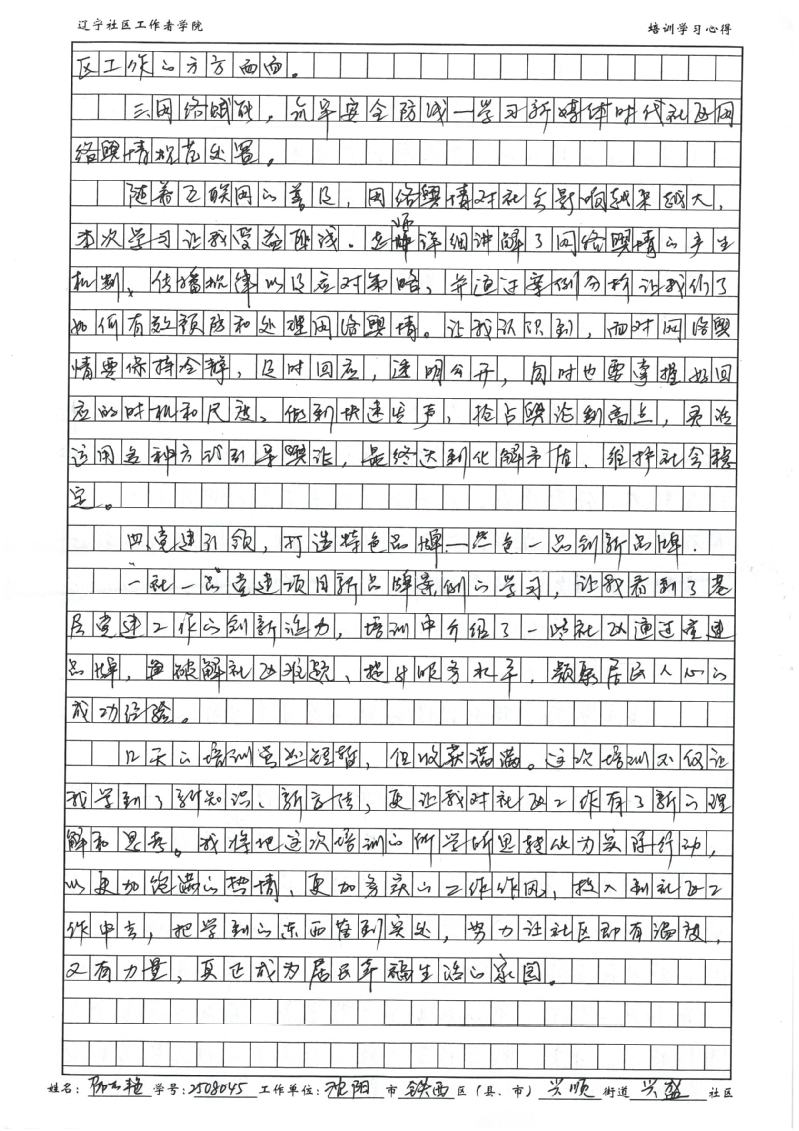 辽宁社区工作者学院 培训学习心得
区工作的方方面面。
三网络赋能,筑牢安全防线一学习新媒体时代社区网
络舆情规范处置。
随着互联网的普及,网络舆情对社会影响越来越大,
本次学习让我受益匪浅。老师详细讲解了网络舆情的产生
机制、传播规律以及应对策略,并通过案例分析让我们了
如何有效预防和处理网络舆情。让我认识到,面对网络舆
情要保持冷静,及时回应,透明公开,同时也要掌握好回
应的时机和尺度、做到快速发声,抢占舆论制高点,灵活
运用各种方式引导舆论,最终达到化解矛盾、维护社会稳
定。
四、党建引领,打造特色品牌一一社一品创新品牌.
一社一品党建项目新品牌案例的学习,让我看到了基
层党建工作的创新活力,培训中介绍了一些社区通过党建
品牌,破解社区难题、提升服务水平,凝聚居民人心的
成功经验。
几天的培训虽然短暂,但收获满满。这次培训不仅让
我学到了新知识、新方法,更让我对社区工作有了新的理
解和思考。我将把这次培训的所学所思转化为实际行动,
以更加饱满的热情、更加务实的工作作风,投入到社区工
作中去,把学到的东西落到实处,努力让社区即有温度,
又有力量,真正成为居民幸福生活的家园。
姓名: 学号:2508045 工作单位:沈阳 市 铁西 区(县、市) 兴顺 街道 兴盛 社区